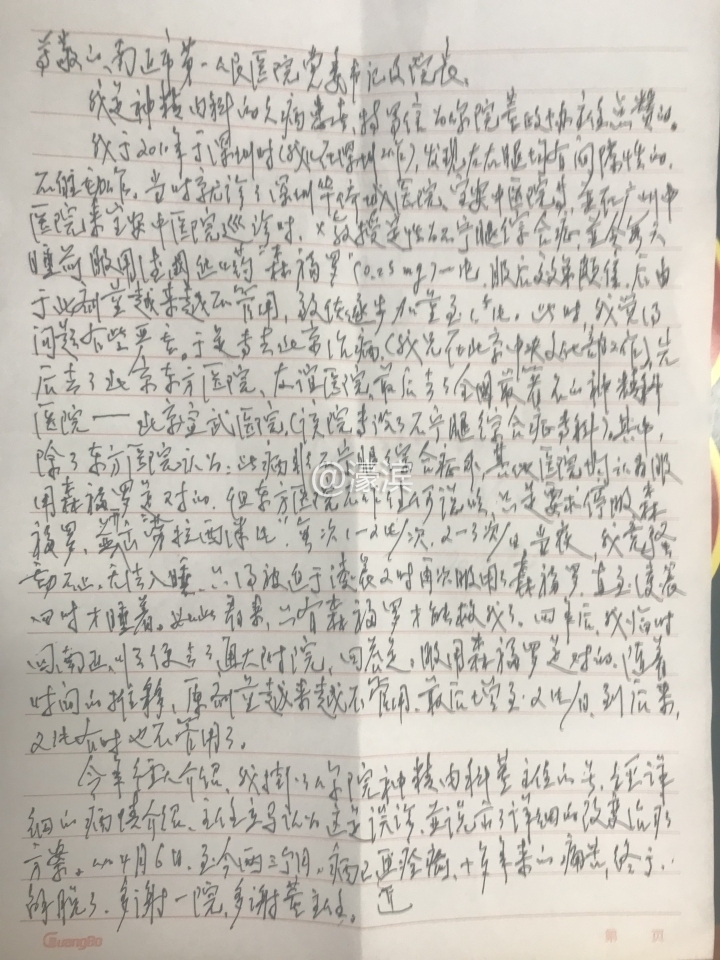 尊敬的南通市第一人民医院党委书记及院长,
我是神经内科的久病患者,特写信为你院董的主任点赞的。
我于2010年于深圳时(我在深圳工作),发现左右腿均有间隙性的,
不住动作,当时就诊了深圳华侨城医院,宝安中医院等,并在广州中
医院来宝安中医院巡诊时,×教授定性为不宁腿综合症,并令每天
睡前服用德国进口药"森福罗"(0.25mg)一片,服后效果颇佳,后由
于此剂量越来越不管用,致使逐步加量至1片。此时,我觉得
问题有些严重。于是专去北京治病,(我儿在北京中央文化部工作),先
后去了北京东方医院、友谊医院,最后去了全国最著名的神经科
医院——北京宣武医院,(该院专设了不宁腿综合症专科)。其中,
除了东方医院认为:此病非不宁腿综合症外,其他医院均认为服
用森福罗是对的,但东方医院不作任何说明,只是要求停服森
福罗,并区劳拉西泮片"每次1-2片/次,2-3次/日,当夜,我竟整
动不止,无法入睡,只得被迫于凌晨2时再次服用了森福罗,直至凌晨
四时才睡着。如此看来,只有森福罗才能救我了。四年后,我临时
回南通,儿子便去了通大附院,回答是:服用森福罗是对的,随着
时间的推移,原剂量越来越不管用,最后增至2片/日,到后来,
2片有时也不管用了。
今年经人介绍,我挂了你院神经内科董主任的号,经详
细的病情介绍,主任立马认为这是误诊,并说出了详细的改变治疗
方案。从4月6日至今两三个月,病已要痊愈,十多年来的痛苦,终于
解脱了。多谢一院,多谢董主任。
@濠滨
GuangBo
第 页